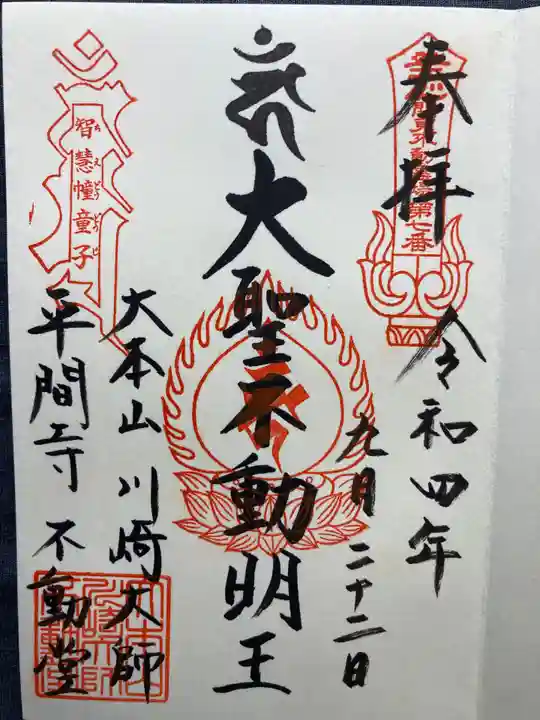 奉拝
第七番
令和四年
九月二十二日
大聖不動明王
智慧幢童子
ちえどうどうじ
大本山 川崎大師
平間寺 不動堂